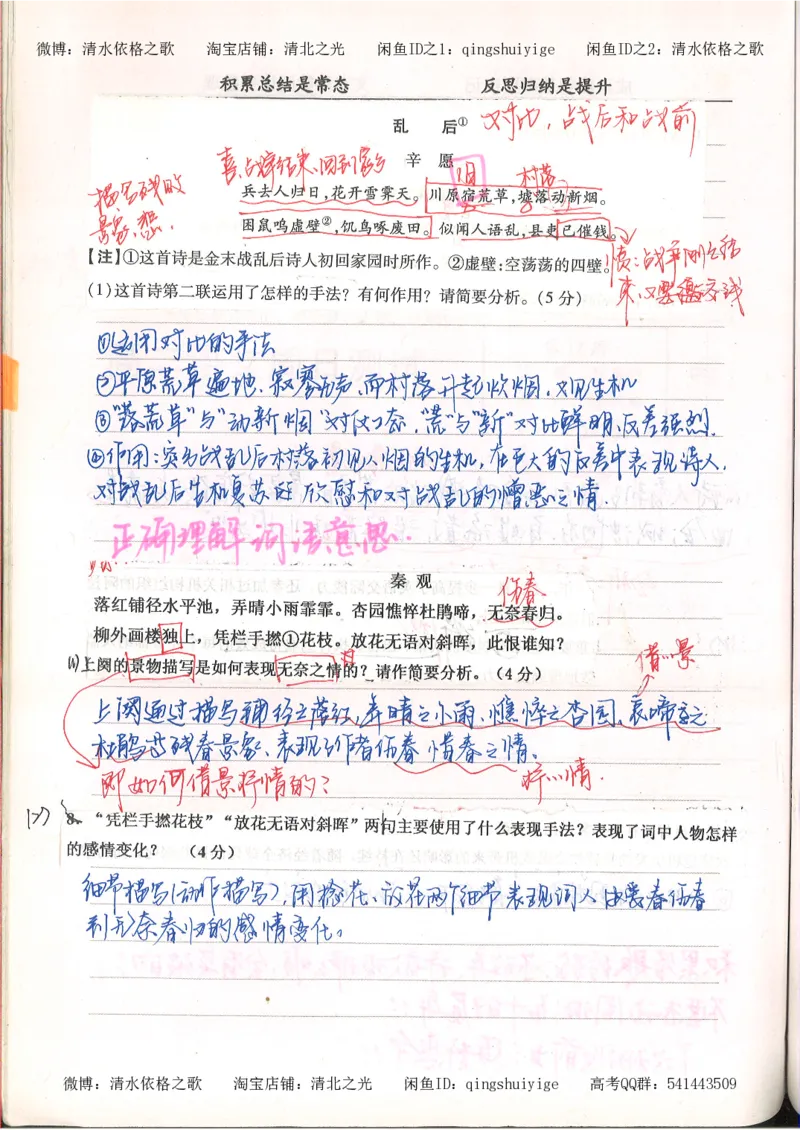 微博：清水依格之歌 淘宝店铺：清北之光 闲鱼ID之1：qingshuiyige 闲鱼ID之2：清水依格之歌
积累总结是常态 反思归纳是提升
乱 后① 对比，战后和战前
喜，战争结束，回到家乡 辛 愿
旧 村落
描写残败 兵去人归日，花开雪霁天。川原宿荒草，墟落动新烟。
景象，悲． 困鼠鸣虚壁②，饥乌啄废田。似闻人语乱，县吏已催钱。
【注】①这首诗是金末战乱后诗人初回家园时所作。②虚壁：空荡荡的四壁。 愤：战争刚结
束，又要缴交钱
(1)这首诗第二联运用了怎样的手法？有何作用？请简要分析。(5 分)
①运用对比的手法
②平原荒草遍地、寂寥无声，而村落升起炊烟，又见生机
③"落荒草"与"动新烟"对仗工态，"荒"与"新"对比鲜明，反差强烈．
④作用：突出战乱后村落初见人烟的生机，在巨大的反差中表现诗人．
对战乱后生机复苏的欣慰和对战乱的憎恶之情．
正确理解词语意思．
秦 观
伤春
落红铺径水平池，弄晴小雨霏霏。杏园憔悴杜鹃啼，无奈春归。
柳外画楼独上，凭栏手撚①花枝。放花无语对斜晖，此恨谁知？
借景
(1)上阕的景物描写是如何表现无奈之情的？请作简要分析。(4 分)
上阕通过描写铺径之落红，弄晴之小雨、憔悴之杏园、哀啼之
杜鹃等残春景象、表现了作者伤春惜春之情。
即如何借景抒情的？ 抒情．
(2) 8. “凭栏手撚花枝”“放花无语对斜晖”两句主要使用了什么表现手法？表现了词中人物怎样
的感情变化？ (4 分)
细节描写(动作描写)，用捻花、放花两个细节表现词人由喪春伤春
到无奈春归的感情变化。
微博：清水依格之歌 淘宝店铺：清北之光 闲鱼ID：qingshuiyige 高考QQ群：541443509